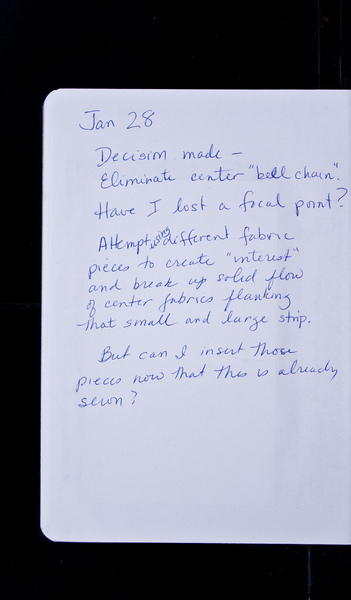 Jan 28
Decision made -
Eliminate center "bell chain".
Have I lost a focal point?
Attempt using different fabric
pieces to create "interest"
and break up solid flow
of center fabrics flanking
that small and large strip.
But can I insert those
pieces now that this is already
sewn?